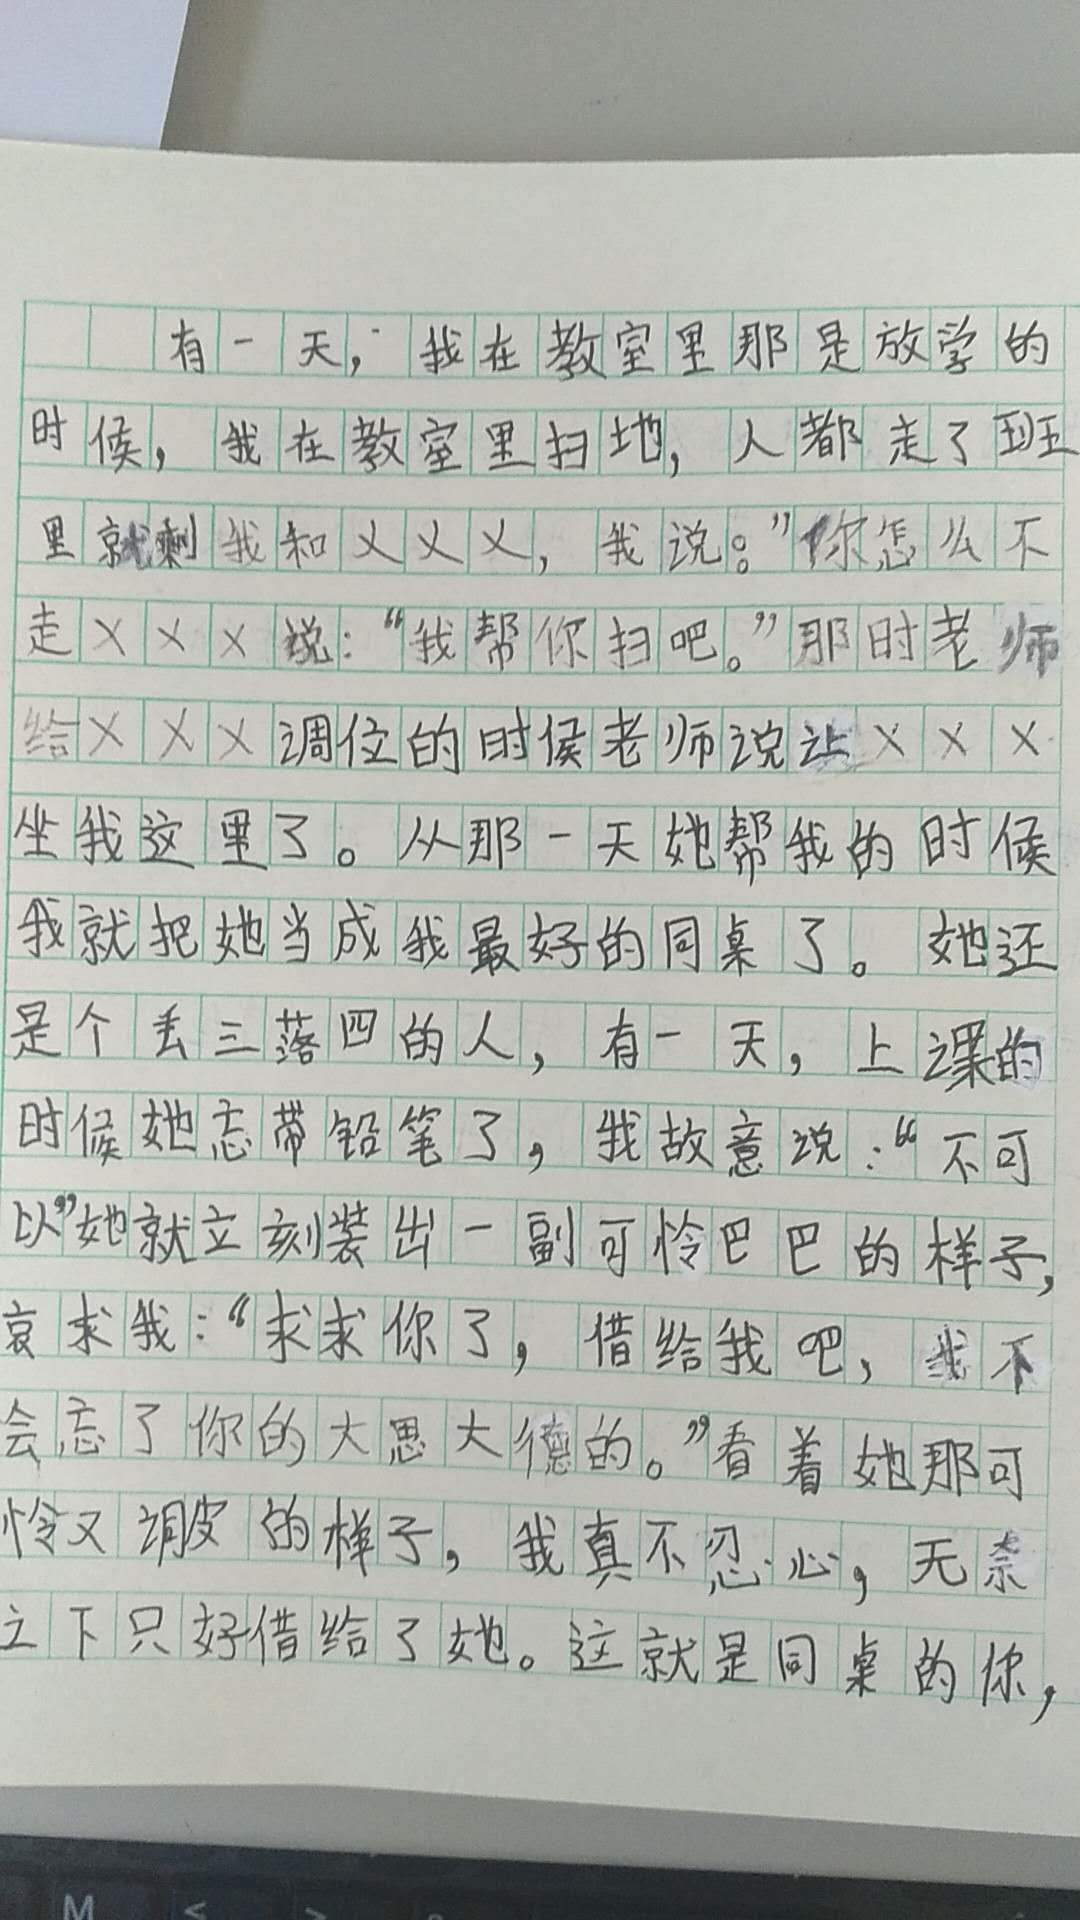 有一天，我在教室里那是放学的
时候，我在教室里扫地，人都走了班
里就剩我和乂乂乂，我说：”你怎么不
走×××说：“我帮你扫吧。”那时老师
给×××调位的时候老师说让×××
坐我这里了。从那一天她帮我的时候
我就把她当成我最好的同桌了。她还
是个丢三落四的人，有一天，上课的
时候她忘带铅笔了，我故意说：“不可
以”她就立刻装出一副可怜巴巴的样子，
哀求我：“求求你了，借给我吧，我不
会忘了你的大恩大德的。”看着她那可
怜又调皮的样子，我真不忍心，无奈
之下只好借给了她。这就是同桌的你，
M < >